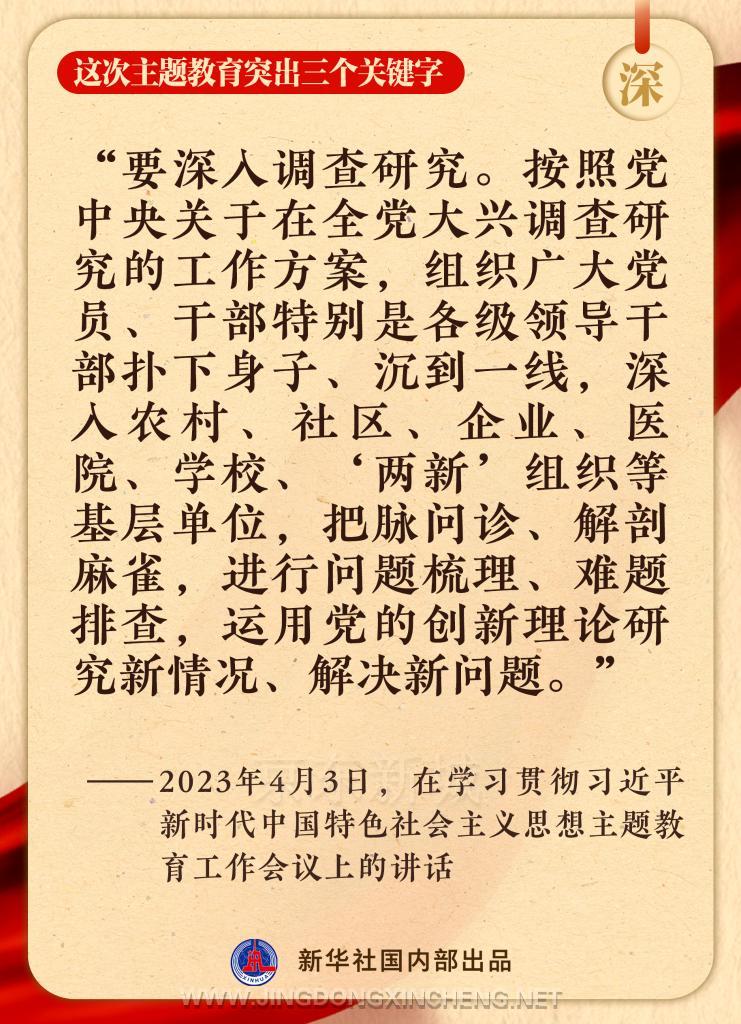 这次主题教育突出三个关键字
深
“要深入调查研究。按照党
中央关于在全党大兴调查研
究的工作方案，组织广大党
员、干部特别是各级领导干
部扑下身子、沉到一线，深
入农村、社区、企业、医
院、学校、‘两新’组织等
基层单位，把脉问诊、解剖
麻雀，进行问题梳理、难题
排查，运用党的创新理论研
究新情况、解决新问题。”
——2023年4月3日，在学习贯彻习近平
新时代中国特色社会主义思想主题教
育工作会议上的讲话
XINHUA
新华社国内部出品
WWW.JINGDONGXINCHENG.NET